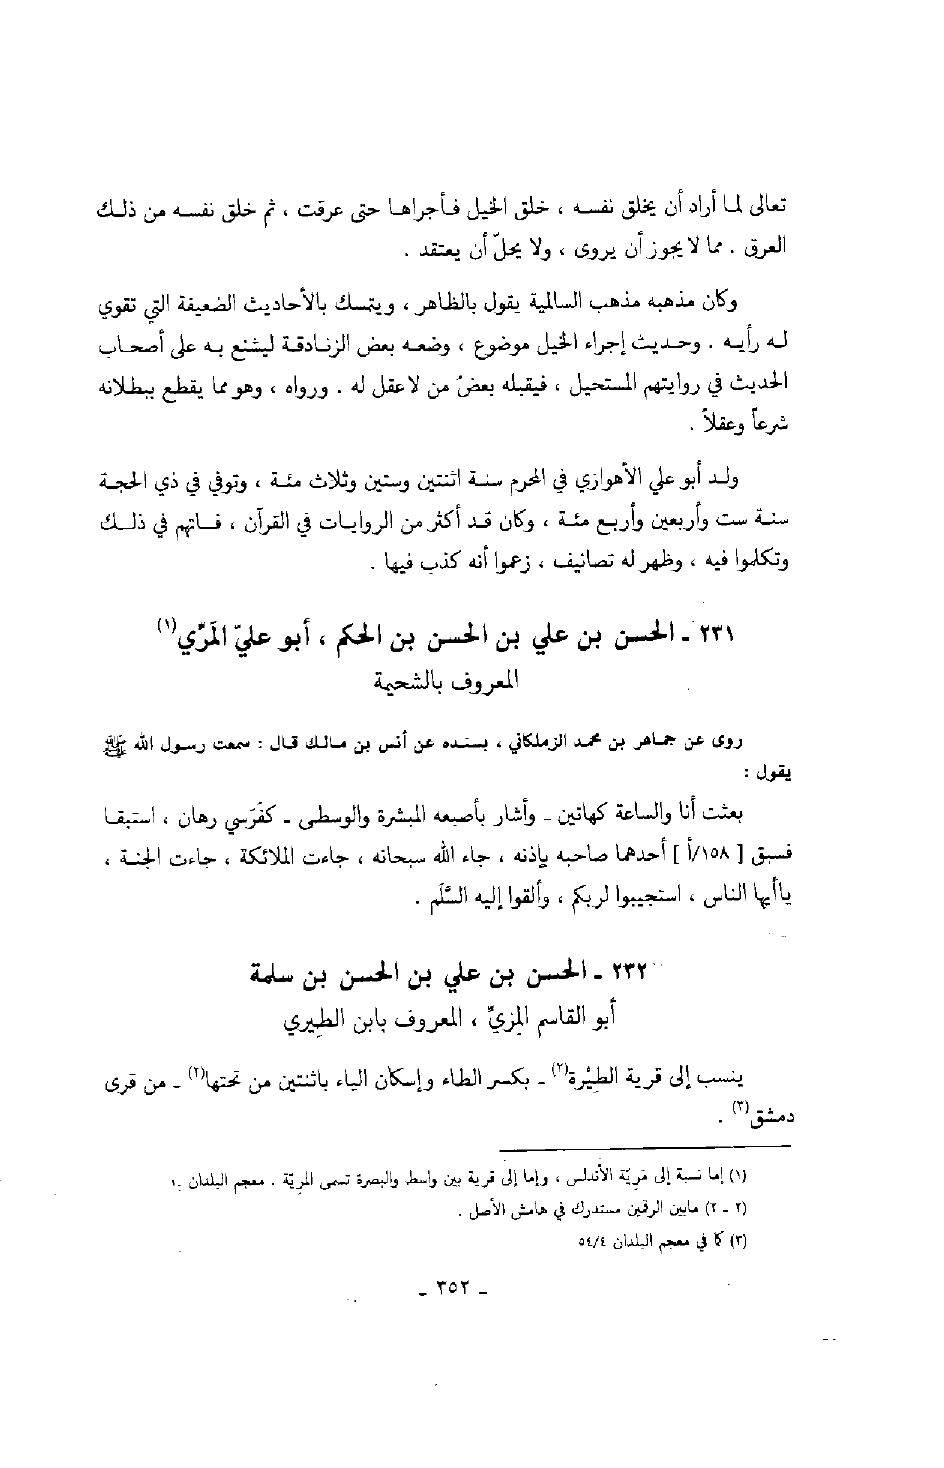 تعالى لما أراد أن يخلق نفسه ، خلق الخيل فأجراها حتى عرقت ، ثم خلق نفسه من ذلك
العرق . مما لا يجوز أن يروى ، ولا يحلّ أن يعتقد .
وكان مذهبه مذهب السالمية يقول بالظاهر ، ويتمسك بالأحاديث الضعيفة التي تقوي
له رأيه . وحديث إجراء الخيل موضوع ، وضعه بعض الزنادقة ليشنع به على أصحاب
الحديث في روايتهم المستحيل ، فيقبله بعضُ من لا عقل له . ورواه ، وهو مما يقطع ببطلانه
شرعاً وعقلاً .
ولد أبو علي الأهوازي في المحرم سنة اثنتين وستين وثلاث مئة ، وتوفي في ذي الحجة
سنة ست وأربعين وأربع مئة ، وكان قد أكثر من الروايات في القرآن ، فاتهم في ذلك
وتكلموا فيه ، وظهر له تصانيف ، زعموا أنه كذب فيها .
٢٣١ ـ الحسن بن علي بن الحسن بن الحكم ، أبو عليّ المَرّي(١)
المعروف بالشحيمة
روى عن جماهر بن محمد الزملكاني ، بسنده عن أنس بن مالك قال : سمعت رسول الله ﷺ
يقول :
بعثت أنا والساعة كهاتين ـ وأشار بأصبعه المبشرة والوسطى ـ كفَرَسي رهان ، استبقا
فسبق [ ١٥٨/أ ] أحدهما صاحبه بإذنه ، جاء الله سبحانه ، جاءت الملائكة ، جاءت الجنة ،
ياأيها الناس ، استجيبوا لربكم ، وألقوا إليه السَّلَم .
٢٣٢ ـ الحسن بن علي بن الحسن بن سلمة
أبو القاسم المِزيّ ، المعروف بابن الطيري
ينسب إلى قرية الطيْرة(٢) ـ بكسر الطاء وإسكان الياء باثنتين من تحتها(٢) ـ من قرى
دمشق(٣) .
(١) إما نسبة إلى مَريّة الأندلس ، وإما إلى قرية بين واسط والبصرة تسمى المريّة . معجم البلدان
(٢ - ٢) مابين الرقمين مستدرك في هامش الأصل .
(٣) كما في معجم البلدان ٥٤/٤
ـ ٣٥٢ ـ